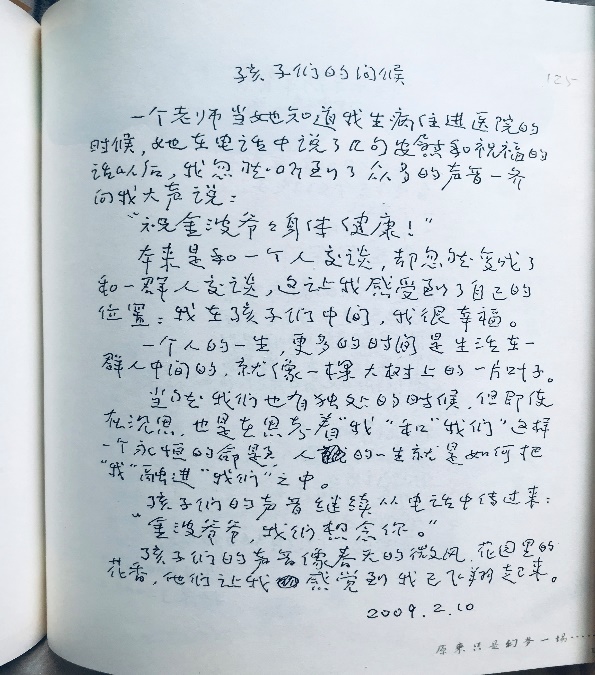 孩子们的问候
125
一个老师当她知道我生病住进医院的
时候，她在电话中说了几句安慰和祝福的
话以后，我忽然听到了众多的声音一齐
向我大声说：
“祝金波爷爷身体健康！”
本来是和一个人交谈，却忽然变成了
和一群人交谈，这让我感受到了自己的
位置：我在孩子们中间，我很幸福。
一个人的一生，更多的时间是生活在一
群人中间的，就像一棵大树上的一片叶子。
当然我们也有独处的时候，但即使
在沉思，也是在思考着“我”和“我们”这样
一个永恒的命题，人的一生就是如何把
“我”融进“我们”之中。
孩子们的声音继续从电话中传过来：
“金波爷爷，我们想念你。”
孩子们的声音像春天的微风，花园里的
花香，他们让我感觉到我已飞翔起来。
2009.2.10
原来只是幻梦一场……